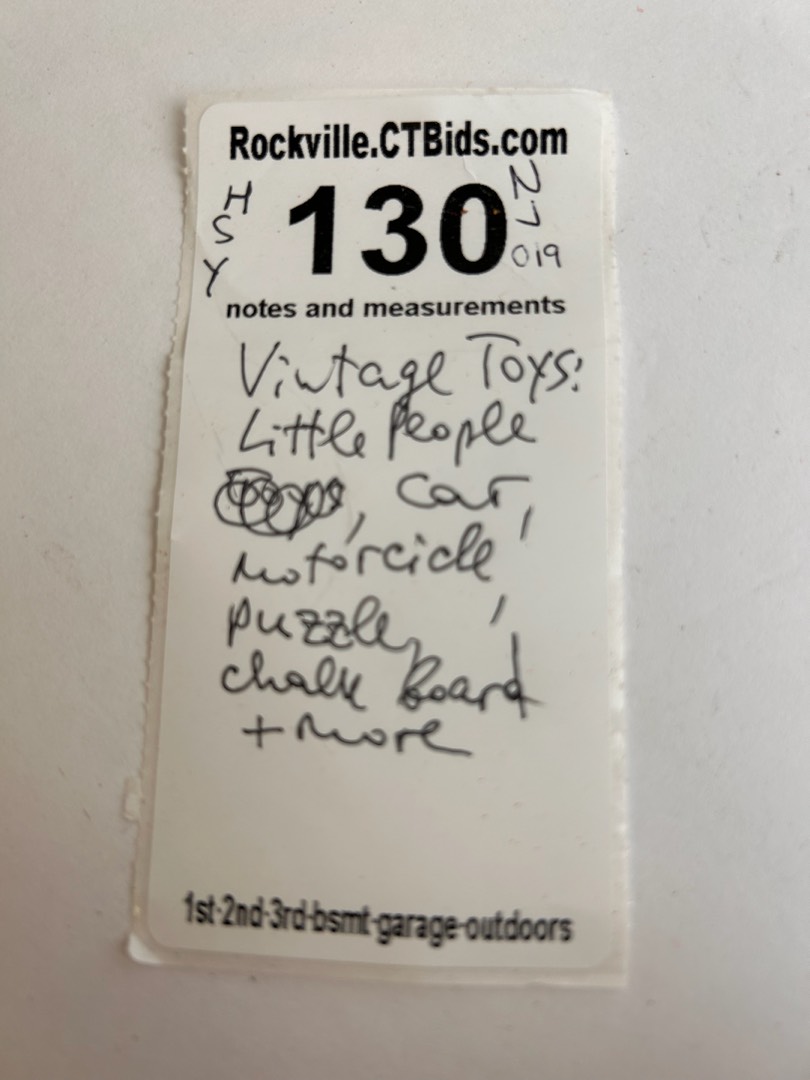 Rockville.CTBids.com
HSY
130
27
019
notes and measurements
Vintage Toys:
Little People
, car,
motorcicle,
puzzle,
chalk board
+ more
1st-2nd-3rd-bsmt-garage-outdoors